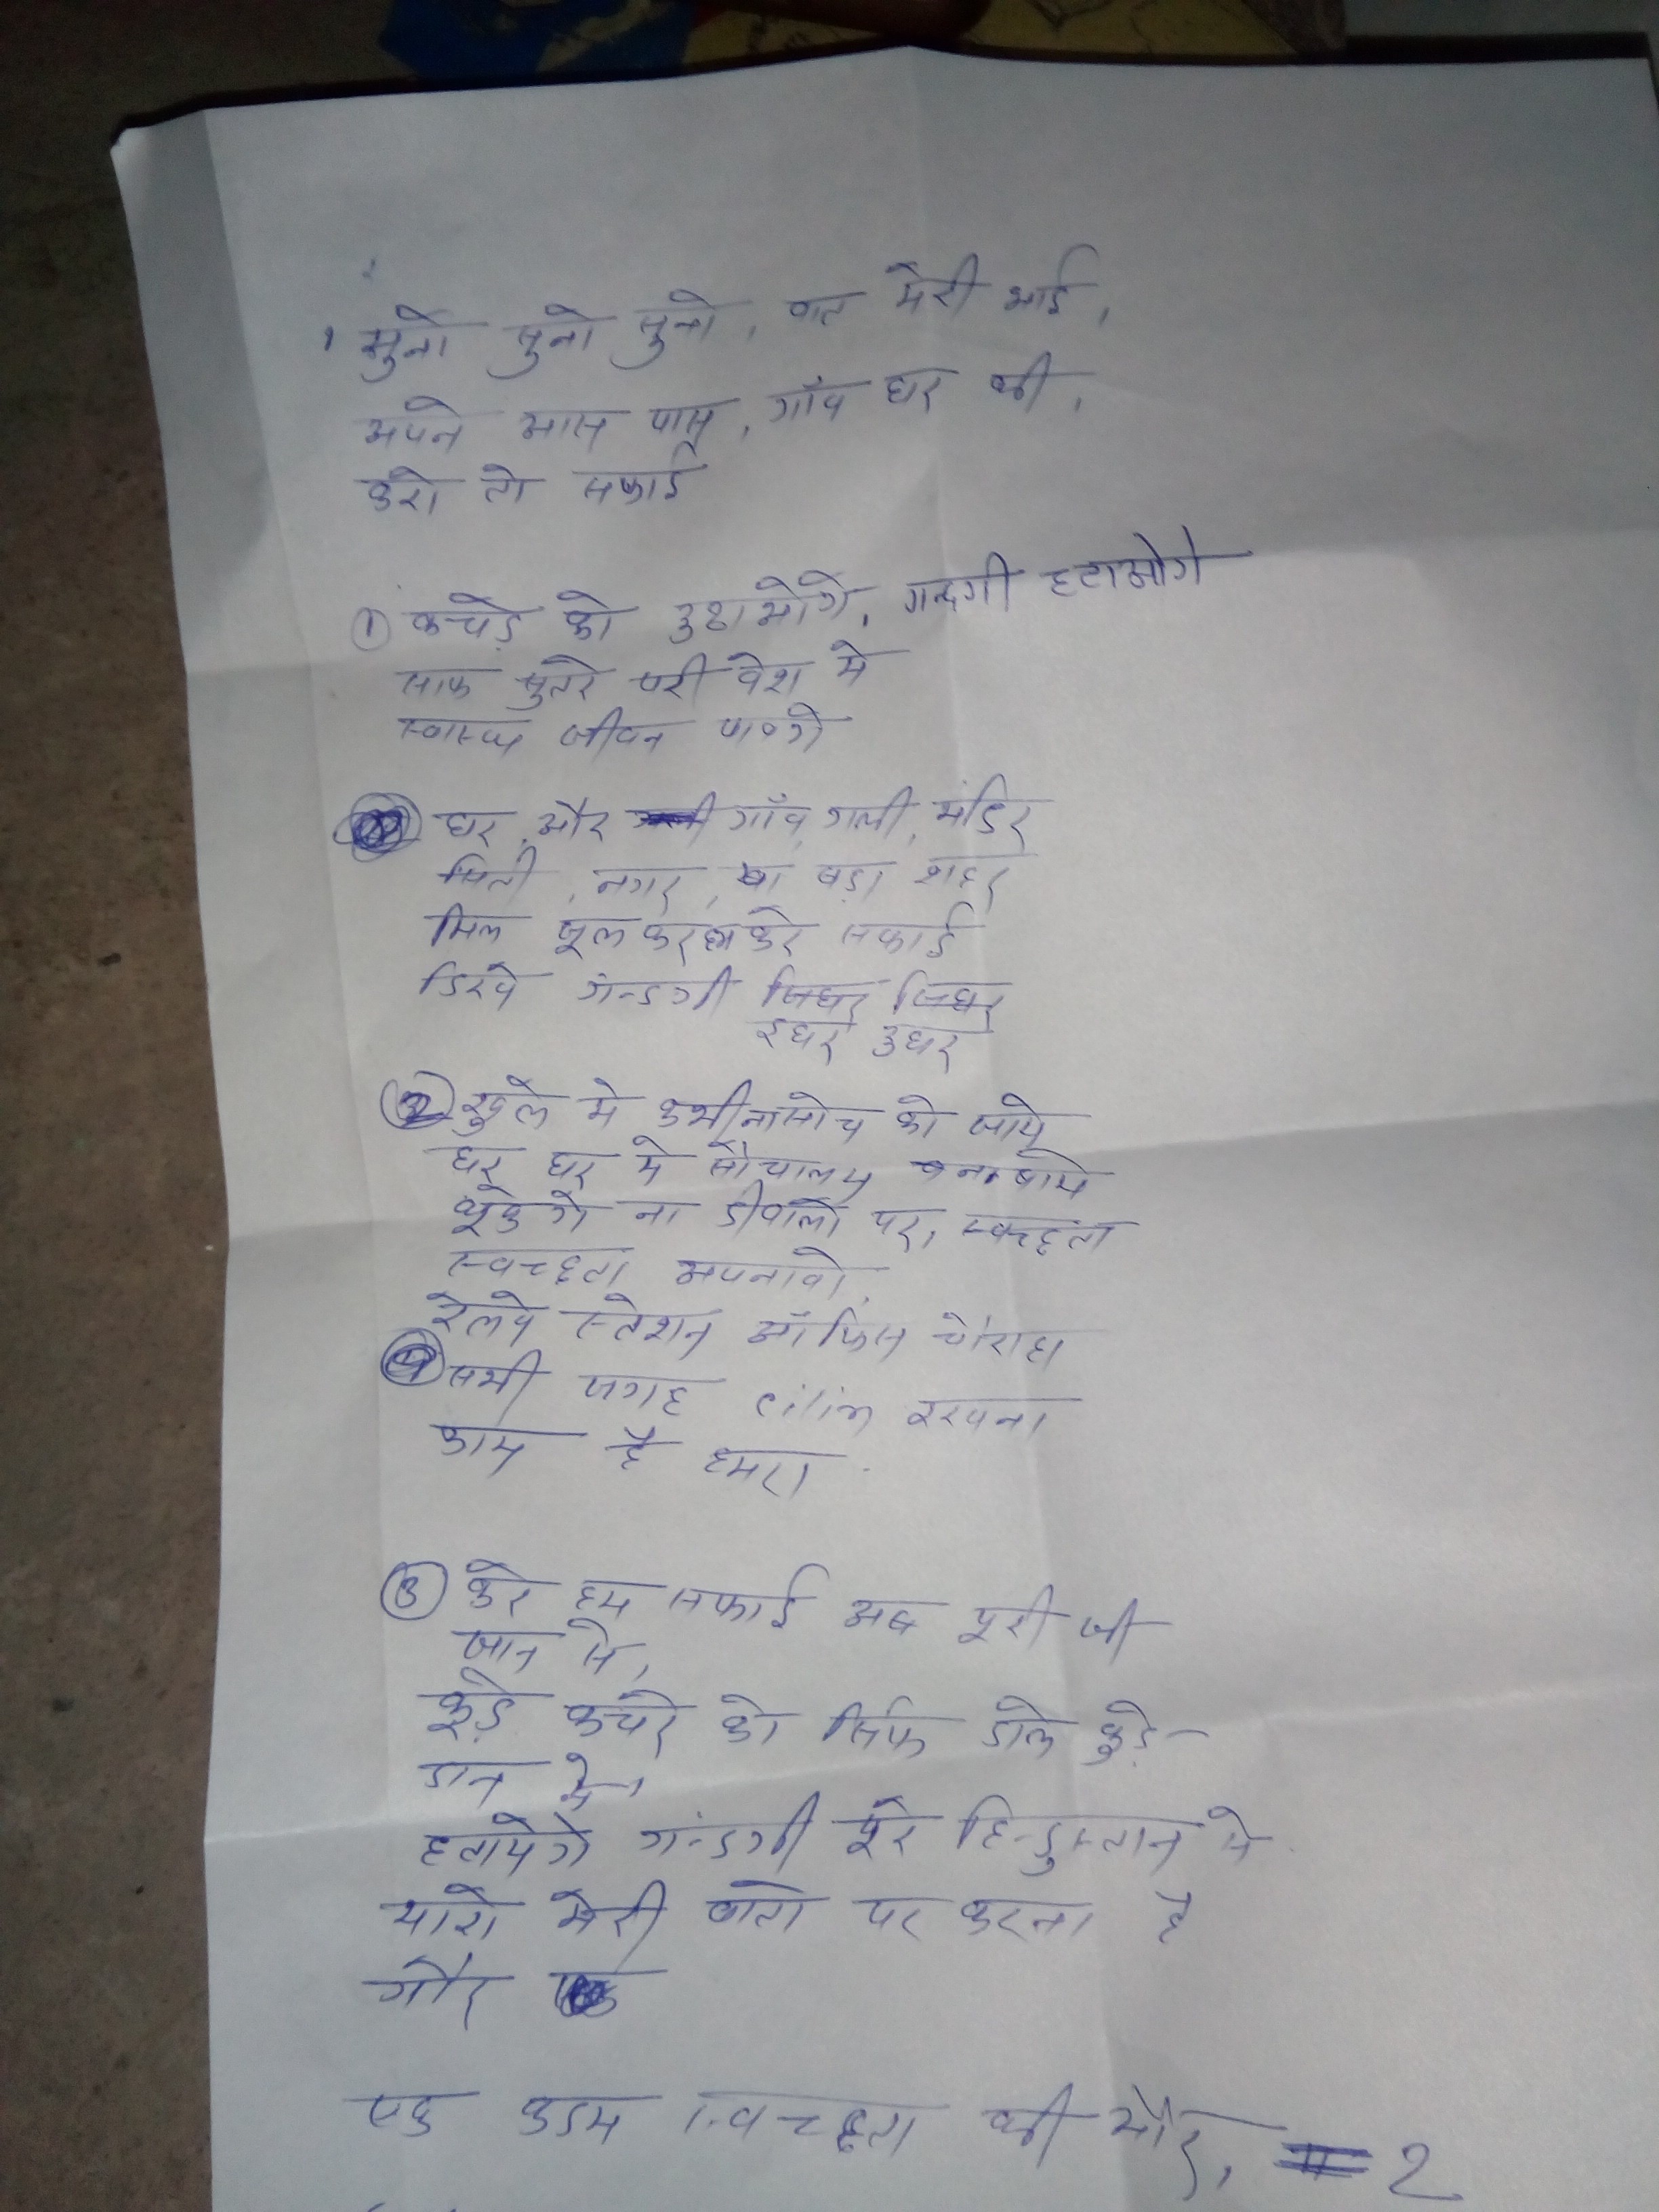 सुनो सुनो सुनो, बात मेरी भाई,
अपने आस पास, गाँव घर की,
करो तो सफाई
① कचड़े को उठाओगे, गन्दगी हटाओगे
साफ सुतरे परी वेश मे
स्वास्थ जीवन पाओगे
घर, और गाँव, गली, मंडिर
सिती, नगर, या बड़ा शहर
मिल जूल कर हम करे सफाई
डिखे गंन्डगी जिधर जिधर
इधर उधर
② खुले मे कभी ना सोच को जाये
घर घर मे सौचालय बनबाये
थूकेगे ना डीवालो पर, स्वच्छता
स्वच्छता अपनावो,
रेलवे स्तेशन ऑफिस चौराहा
सभी जगह cilin रखना
काम है हमरा
③ करे हम सफाई अब पूरी जी
जान से,
कूड़े कचरे को सिर्फ डाले कुड़े-
डान मे,
हतायेगे गंन्डगी पूरे हिन्डुस्तान से
यारो मेरी बातो पर करना है
गौर
एक कडम स्वच्छता की और, 2